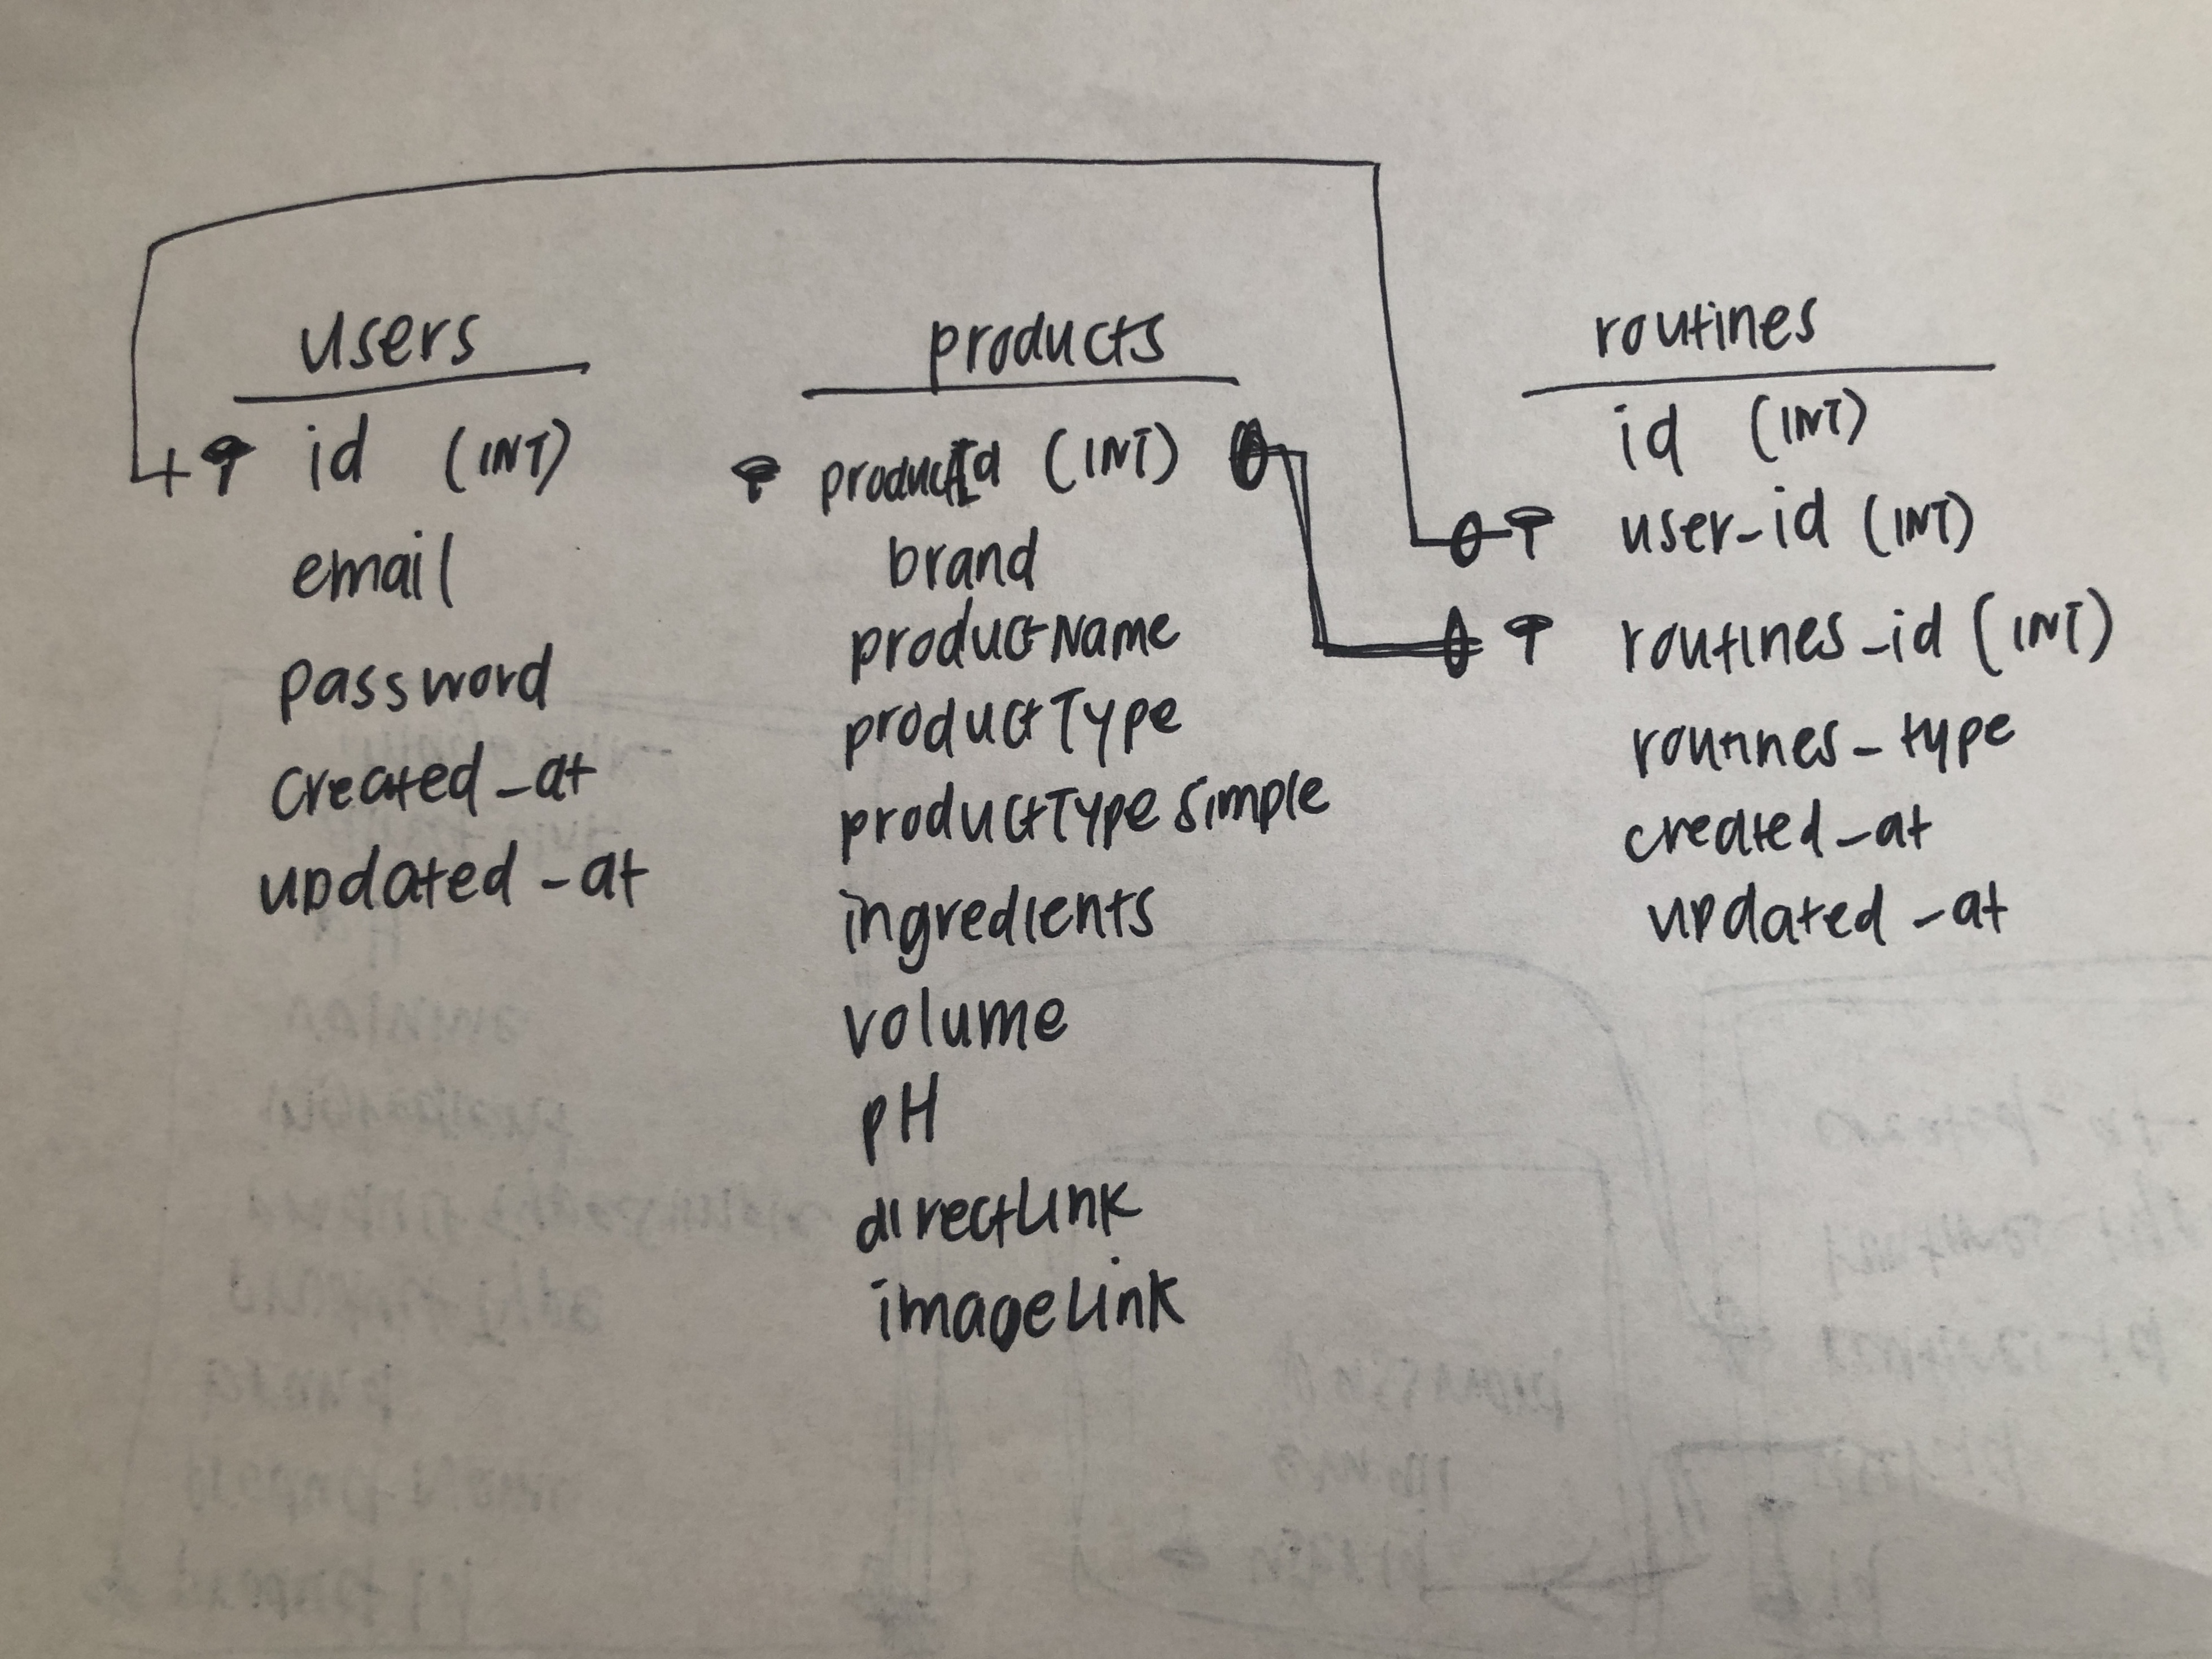 users
id (INT)
email
password
created_at
updated_at
products
productId (INT)
brand
productName
productType
productTypeSimple
ingredients
volume
pH
directLink
imageLink
routines
id (INT)
user_id (INT)
routines_id (INT)
routines_type
created_at
updated_at